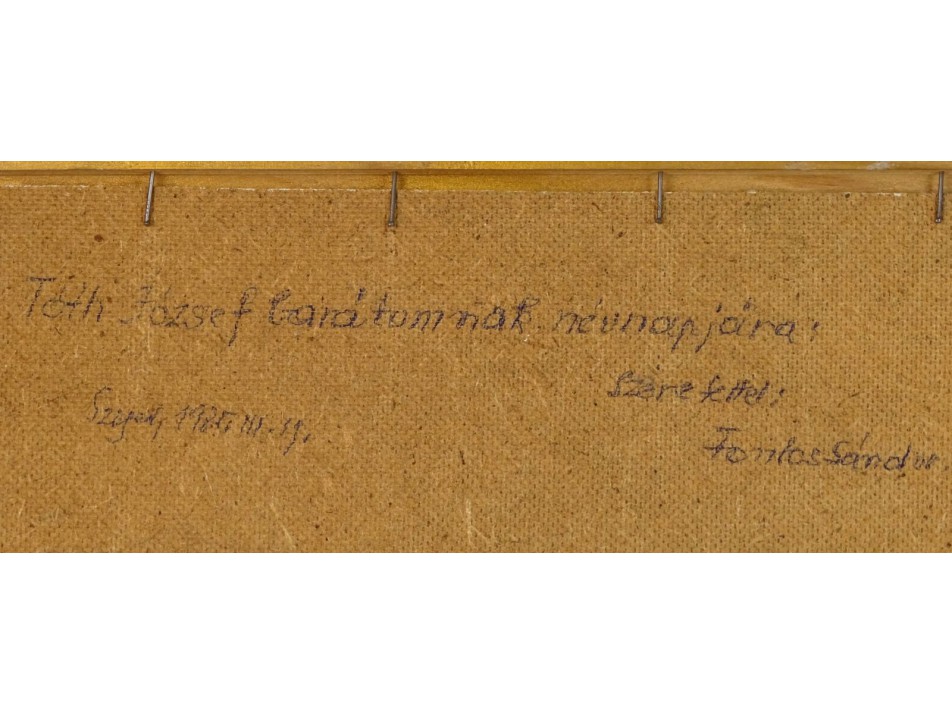 Tóth József barátomnak névnapjára:
Szeretettel:
Fontos Sándor
III. 19.